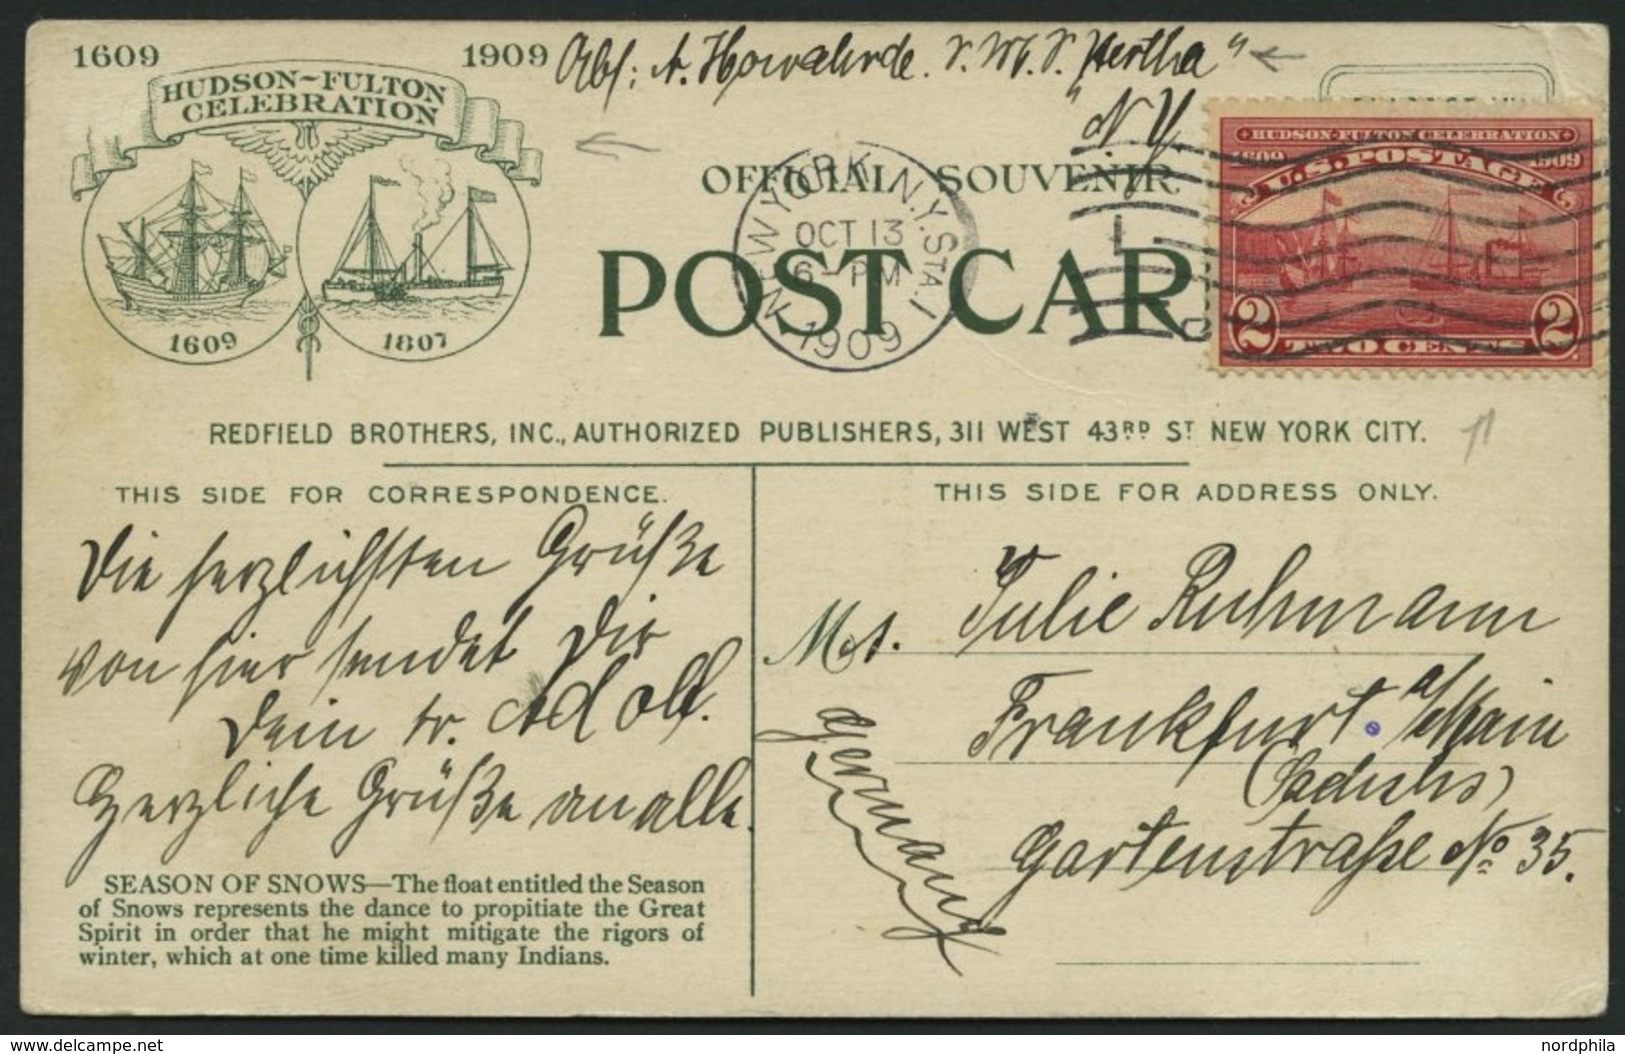 1609 1909
HUDSON-FULTON
CELEBRATION
1609
1807
Abs: A. Howahrde. S.M.S. "Hertha"
N.Y.
OFFICIAL SOUVENIR
POST CAR
NEW YORK, N.Y. STA. I
OCT 13
6 - PM
1909
HUDSON-FULTON CELEBRATION
1609 1909
U.S. POSTAGE
2 2
TWO CENTS
REDFIELD BROTHERS, INC., AUTHORIZED PUBLISHERS, 311 WEST 43RD ST NEW YORK CITY.
THIS SIDE FOR CORRESPONDENCE.
Die herzlichsten Grüße
von hier sendet Dir
Dein tr. Adolf.
Herzliche Grüße an alle.
SEASON OF SNOWS—The float entitled the Season
of Snows represents the dance to propitiate the Great
Spirit in order that he might mitigate the rigors of
winter, which at one time killed many Indians.
THIS SIDE FOR ADDRESS ONLY.
Julie Ruhmann
Frankfurt a/Main
Gartenstraße No 35.
Germany
delcampe.net
nordphila